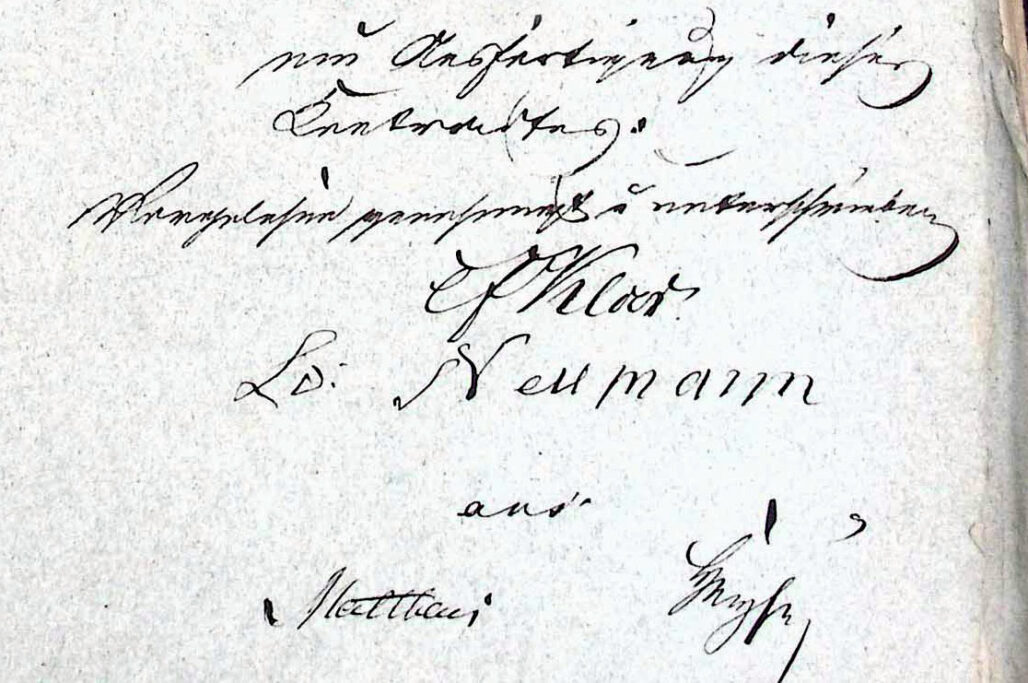 um Ausfertigung dieses
Contractes.
Vorgelesen genehmigt u unterschrieben
CF Kloor
Ld: Neumann
aus
Matthaei